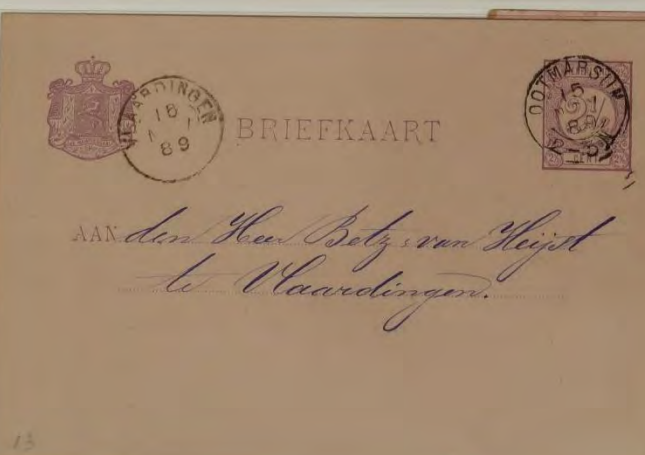 VLAARDINGEN
16
1
89
BRIEFKAART
OOTMARSUM
15
89
CENT
AAN den Heer Betz: van Heijst
te Vlaardingen.
13